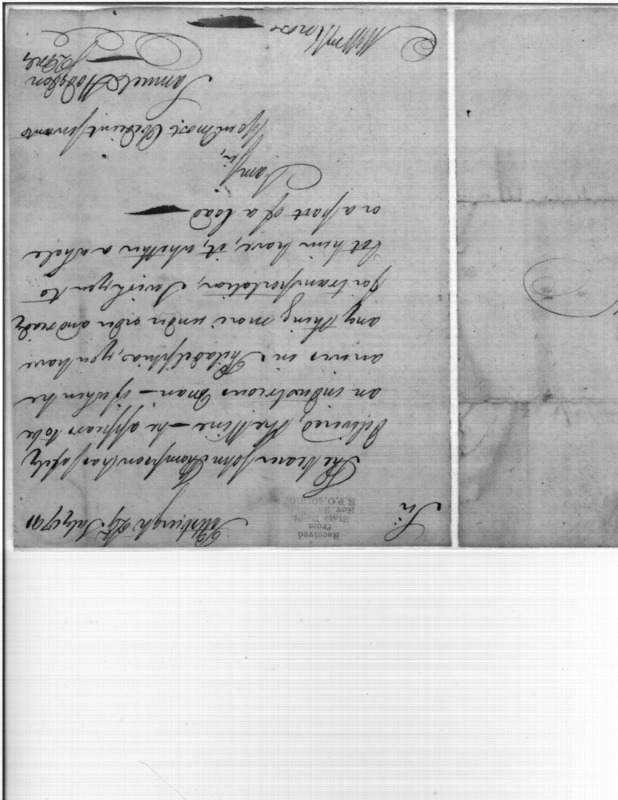 Received
from
State Dept.
Pittsburgh 29th July 1791
Sir
The bearer John Thompson has safely
delivered the Wine — he appears to be
an industrious Man — if when he
arrives in Philadelphia, you have
any thing more under order and ready
for transportation, I wish you to
let him have, it, whether a whole
or a part of a load
I am
Sir,
Your most Obedient servant
Samuel Hodgdon
QMG
Knox